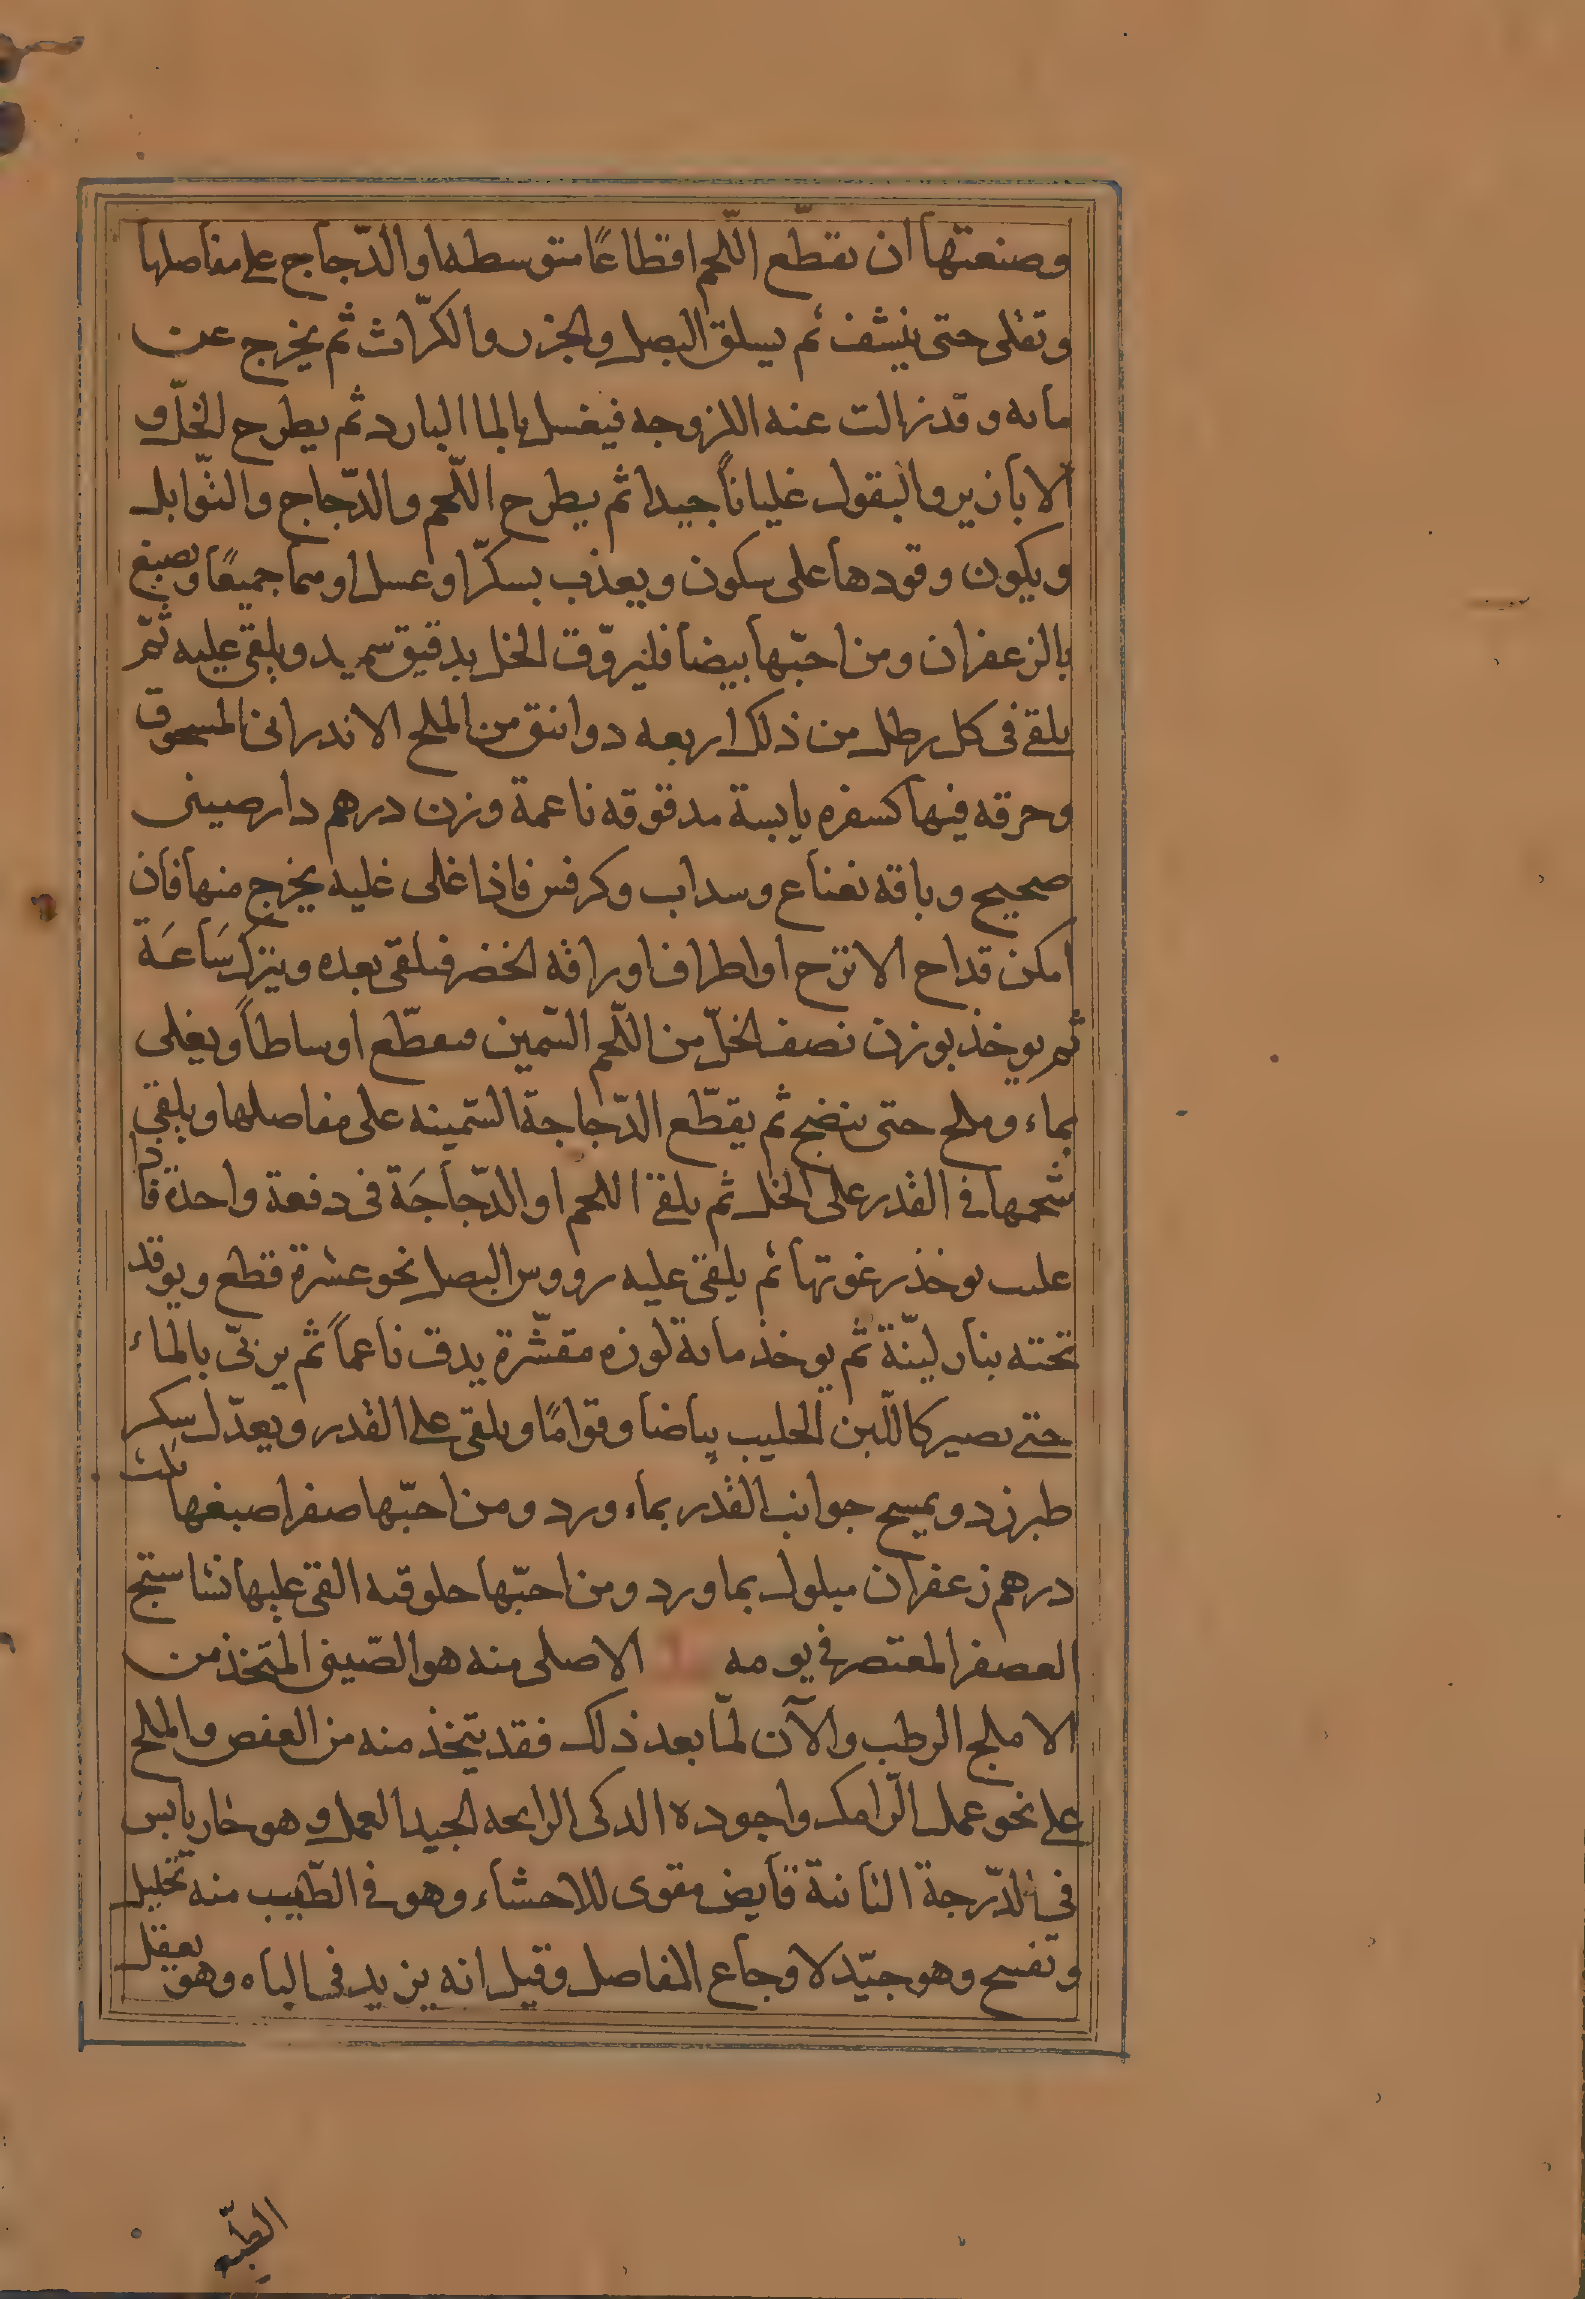 وصنعتها ان تقطّع اللّحم اقطاعًا متوسطه او الدّجاج على مفاصلها
وتغلى حتى ينشف ثم يسلق البصل والجزر والكرّاث ثم يخرج عن
مايه وقد زالت عنه اللزوجه فيغسل بالما البارد ثم يطرح الخلّ و
الابازير والبقول غلياناً جيدا ثم يطرح اللّحم والدّجاج والتّوابل
ويكون وقودها على سكون ويعذب بسكرّ او عسل او هما جميعًا ويصبغ
بالزعفران ومن احبّها بيضا فليروّق الخل بدقيق سميد ويلقى عليه ثمّ
يلقى فى كل رطل من ذلك اربعه دوانق من الملح الاندرانى المسحوق
وحرقه فيها كسفره يابسة مدقوقه ناعمة وزن درهم دارصينى
صحيح وباقه نعناع وسداب وكرفس فاذا غلى غليه يخرج منها فان
امكن قداح الاترج او اطراف اوراقه الخضر فيلقى بعده ويترك سَاعَة
ثم يوخذ بوزن نصف الخلّ من اللّحم السّمين فيقطّع اوساطاً ويغلى
بماء وملح حتى ينضج ثم يقطّع الدّجاجة السّمينه على مفاصلها ويلقى
شحمها فى القدر على الخل ثم يلقى اللحم او الدّجاجَة فى دفعة واحدة فاذا
غليت يوخذ رغوتها ثم يلقى عليه رووس البصل نحو عشرة قطع ويوقد
تحته بنار ليّنة ثم يوخذ مايه لوزه مقشّرة يدق ناعماً ثم يربّى بالماء
حتى يصير كاللّبن الحليب بياضا وقوامًا ويلقى على القدر ويعدّل بسكر
طبرزد ويمسح جوانب القدر بماء ورد ومن احبّها صفرا صبغها بثلث
درهم زعفران مبلول بماورد ومن احبّها حلوقيه القى عليها نشاستج
العصفر المعتصر فى يومه الاصلى منه هو الصّينى المتّخذ من
الاملج الرطب والآن لمّا بعد ذلك فقد يتّخذ منه من العفص والبلح
على نحو عمل الرّامك واجوده الدكى الرايحه الجيد العمل وهو حار يابس
فى الدّرجة الثانية قابض مقوى للاحشاء وهو فى الطّيب منه تحليل
وتفسح وهو جيّد لاوجاع المفاصل وقيل انه يزيد فى الباه وهو يعقل